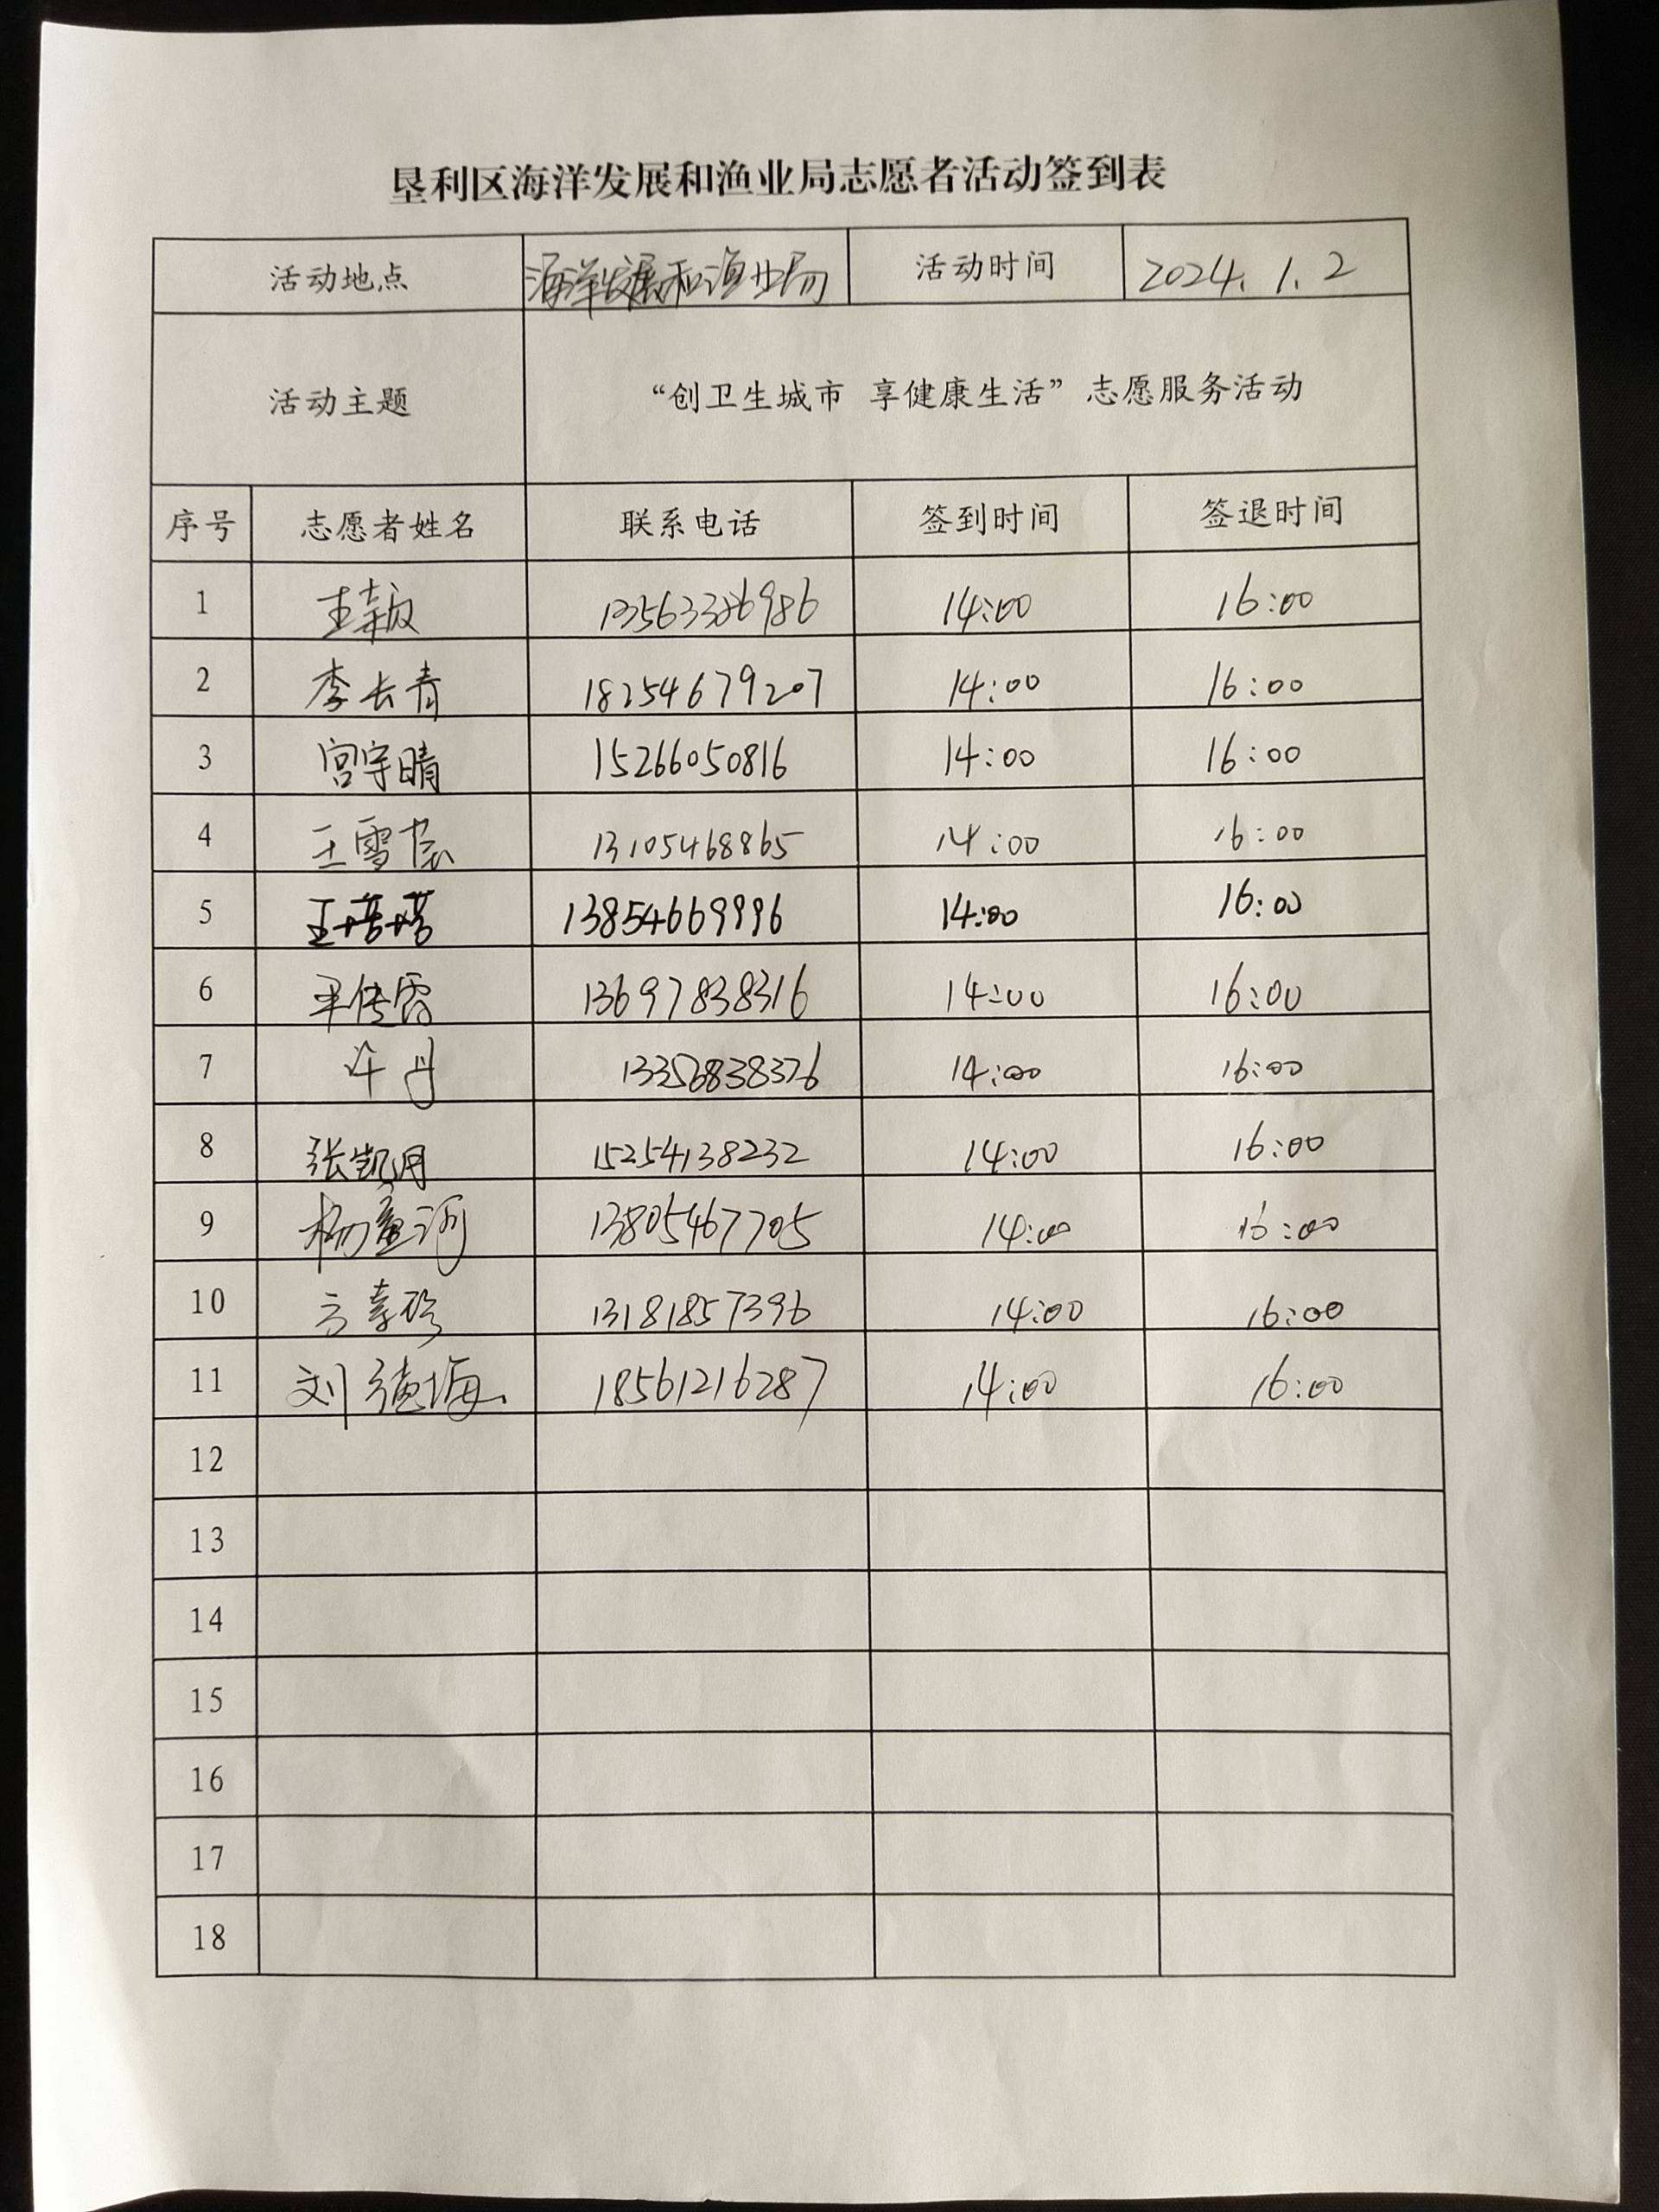 垦利区海洋发展和渔业局志愿者活动签到表
活动地点 海洋发展和渔业局 活动时间 2024.1.2
活动主题 “创卫生城市 享健康生活”志愿服务活动
序号 志愿者姓名 联系电话 签到时间 签退时间
1 王颖 13563386986 14:00 16:00
2 李长青 18254679207 14:00 16:00
3 宫宇晴 15266050816 14:00 16:00
4 王雪 13105468865 14:00 16:00
5 王塔塔 13854669996 14:00 16:00
6 13697838316 14:00 16:00
7 许丹 13356838376 14:00 16:00
8 张凯月 15254138232 14:00 16:00
9 杨童河 13805467705 14:00 16:00
10 方 13181857396 14:00 16:00
11 刘德海 18561216287 14:00 16:00
12
13
14
15
16
17
18